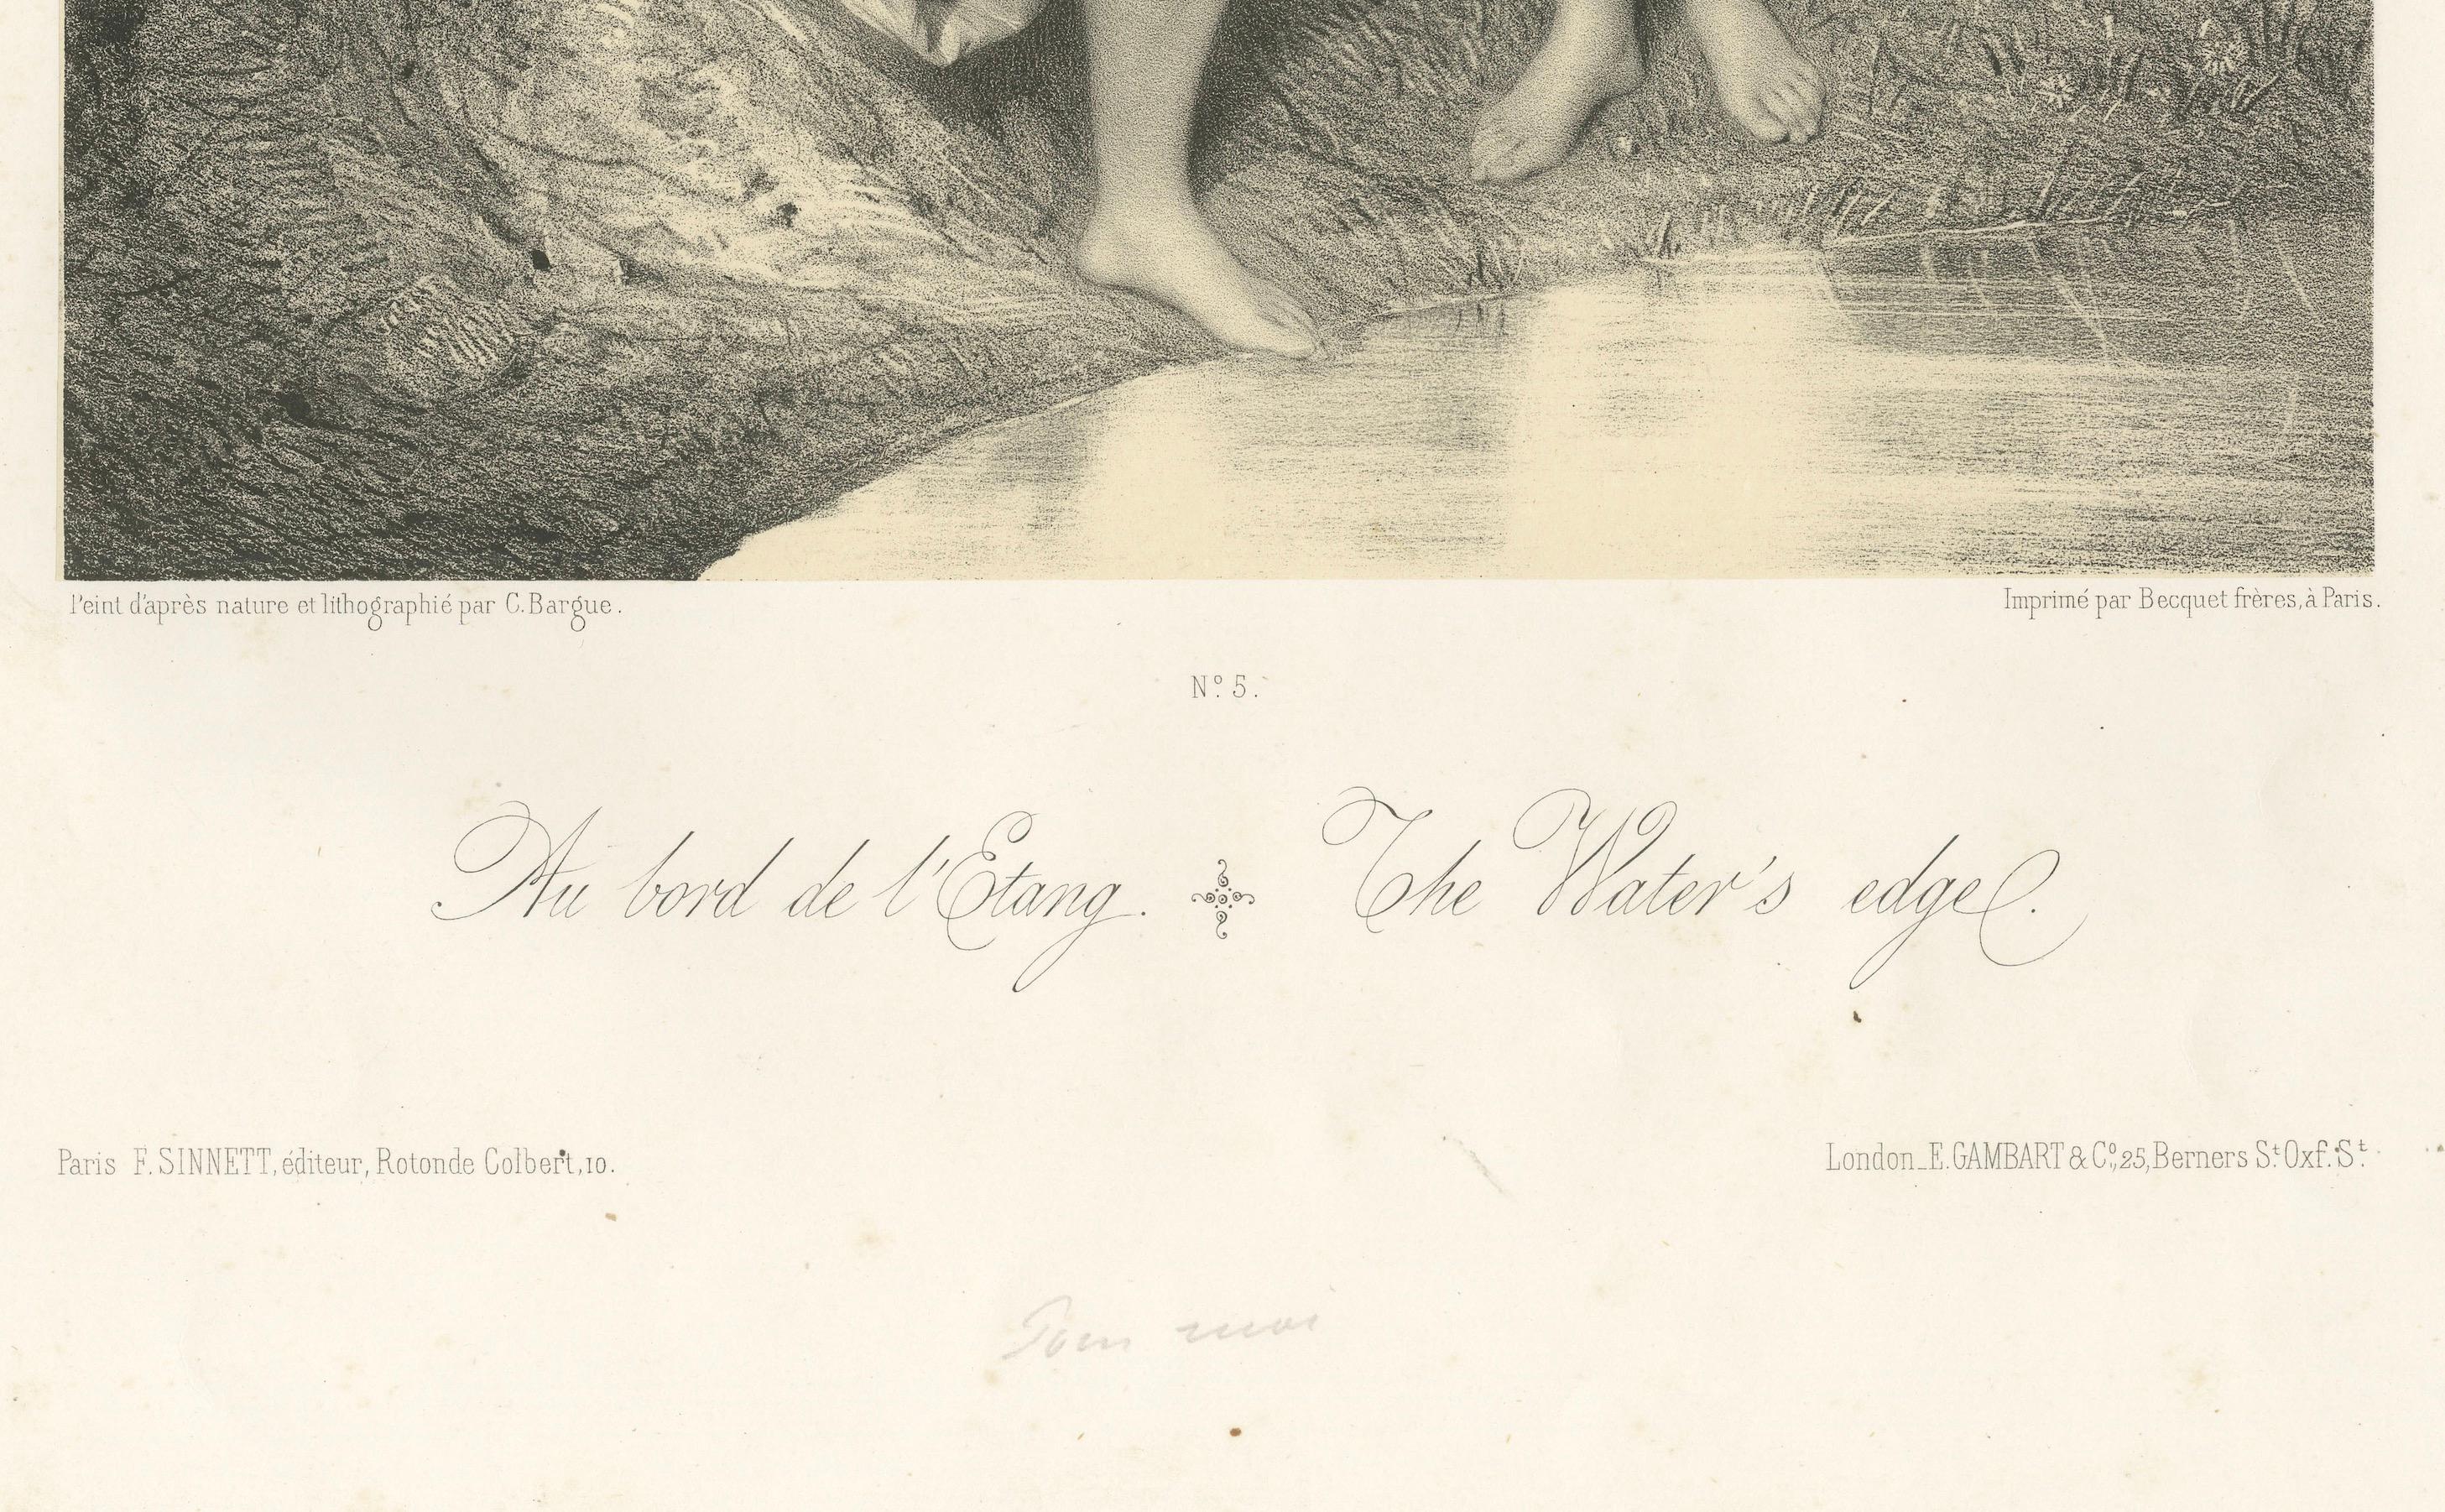 Peint d'après nature et lithographié par C. Bargue.
Imprimé par Becquet frères, à Paris.
Nº 5.
Au bord de l'Etang. The Water's edge.
Paris F. SINNETT, éditeur, Rotonde Colbert, 10.
London_E. GAMBART & Cº, 25, Berners St. Oxf. St.
Pour moi